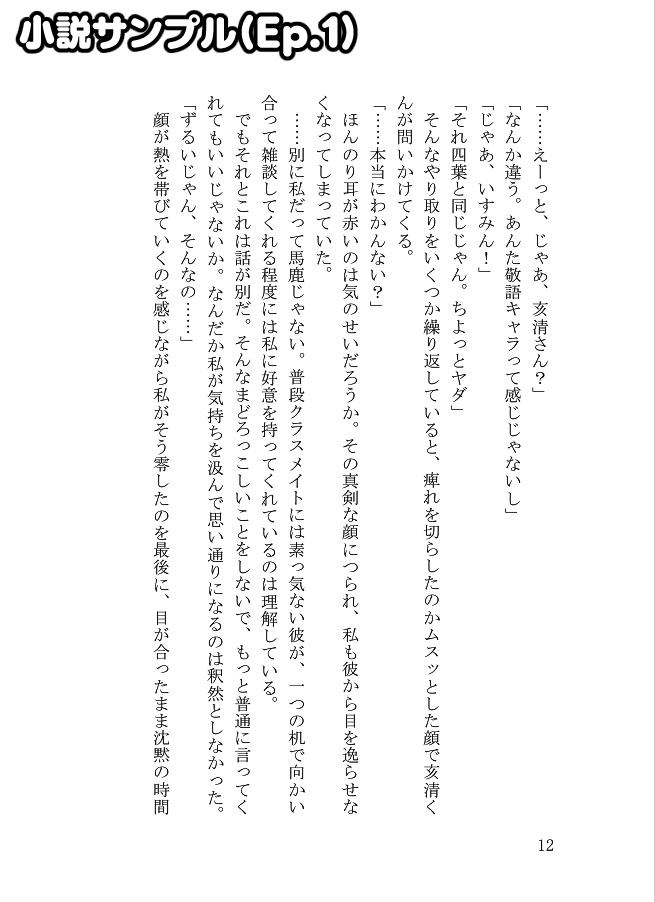 小説サンプル(Ep.1)
「……えーっと、じゃあ、亥清さん？」
「なんか違う。あんた敬語キャラって感じじゃないし」
「じゃあ、いすみん！」
「それ四葉と同じじゃん。ちょっとヤダ」
　そんなやり取りをいくつか繰り返していると、痺れを切らしたのかムスッとした顔で亥清く
んが問いかけてくる。
「……本当にわかんない？」
　ほんのり耳が赤いのは気のせいだろうか。その真剣な顔につられ、私も彼から目を逸らせな
くなってしまっていた。
　……別に私だって馬鹿じゃない。普段クラスメイトには素っ気ない彼が、一つの机で向かい
合って雑談してくれる程度には私に好意を持ってくれているのは理解している。
　でもそれとこれは話が別だ。そんなまどろっこしいことをしないで、もっと普通に言ってく
れてもいいじゃないか。なんだか私が気持ちを汲んで思い通りになるのは釈然としなかった。
「ずるいじゃん、そんなの……」
　顔が熱を帯びていくのを感じながら私がそう零したのを最後に、目が合ったまま沈黙の時間
12